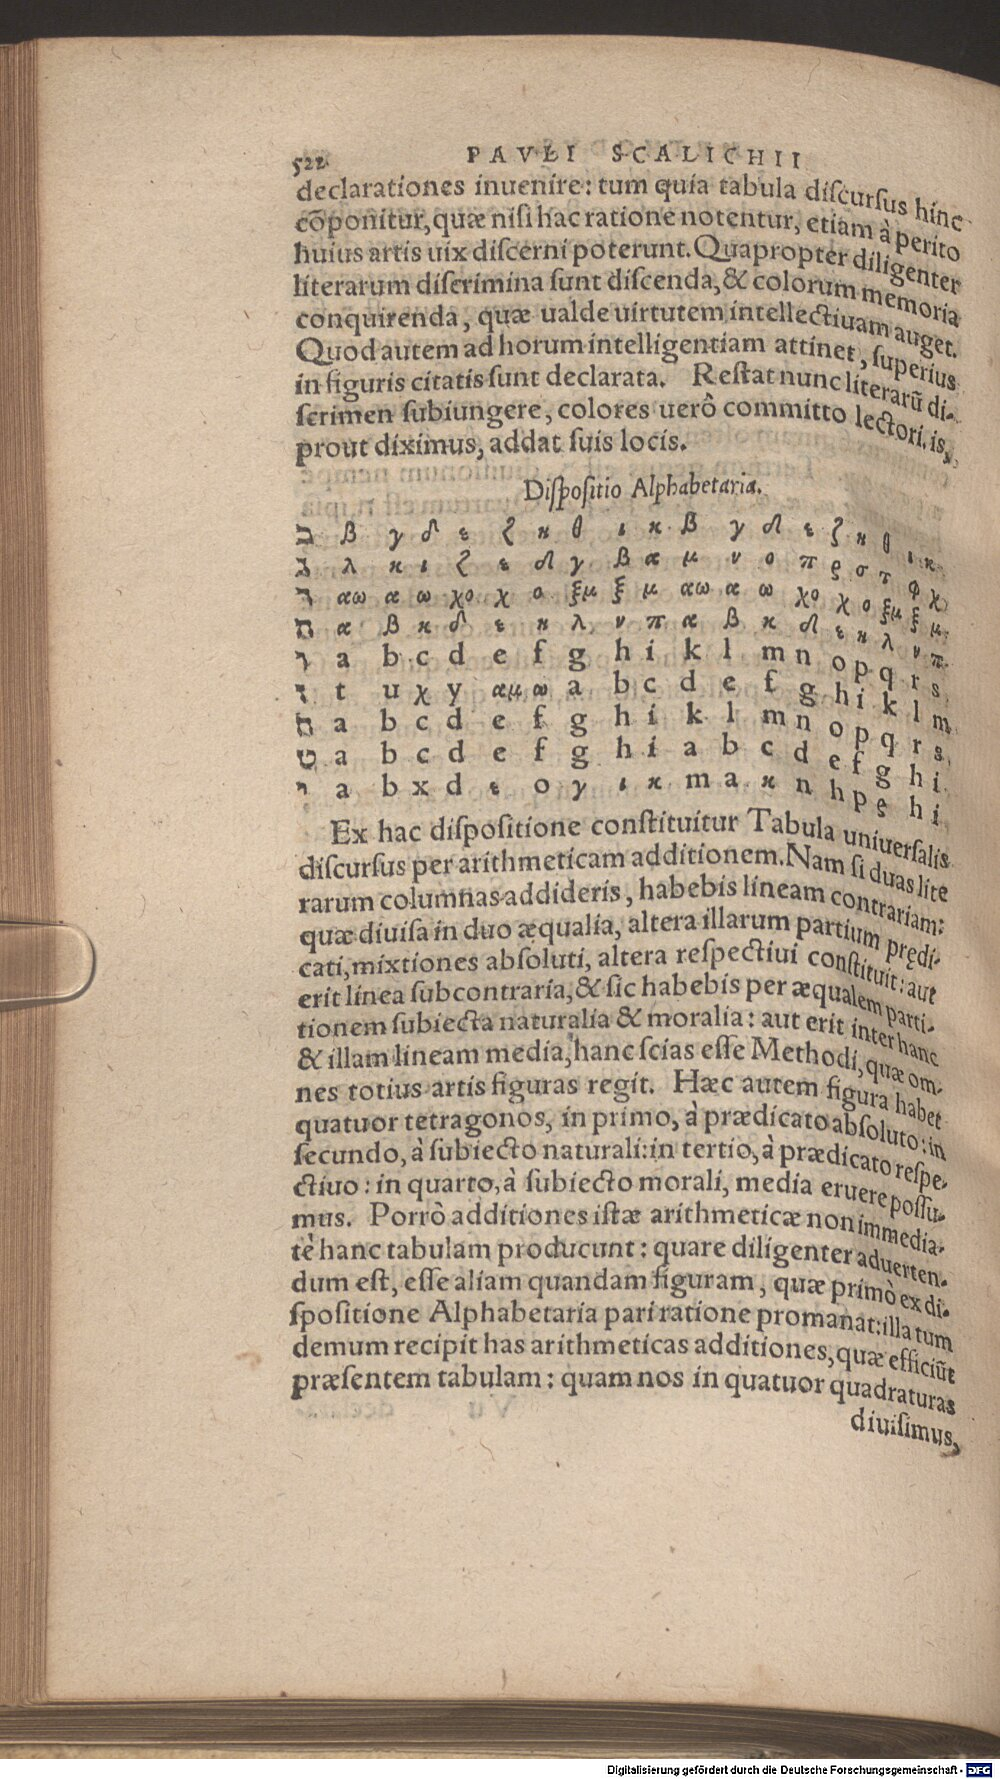 522 PAVLI SCALICHII
declarationes inuenire: tum quia tabula discursus hinc
cōponitur, quæ nisi hac ratione notentur, etiam à perito
huius artis uix discerni poterunt. Quapropter diligenter
literarum discrimina sunt discenda, & colorum memoria
conquirenda, quæ ualde uirtutem intellectiuam auget.
Quod autem ad horum intelligentiam attinet, superius
in figuris citatis sunt declarata. Restat nunc literarū di-
scrimen subiungere, colores uerò committo lectori, is,
prout diximus, addat suis locis.
Dispositio Alphabetaria.
ב β γ δ ε ζ κ θ ι κ β γ δ ε ζ κ θ ι κ
ג λ κ ι ζ ε δ γ β α μ ν ο π ρ σ τ φ χ
ד αω α ω χο χ ο ξμ ξ μ αω α ω χο χ ο ξμ ξ μ
ה α β κ δ ε κ λ ν π α β κ δ ε κ λ ν π
ו a b c d e f g h i k l m n o p q r s
ז t u χ y αμω a b c d e f g h i k l m
ח a b c d e f g h i k l m n o p q r s
ט a b c d e f g h i a b c d e f g h i
י a b x d ε o γ ι κ m a κ n h p ε h i
Ex hac dispositione constituitur Tabula uniuersalis
discursus per arithmeticam additionem. Nam si duas lite
rarum columnas addideris, habebis lineam contrariam:
quæ diuisa in duo æqualia, altera illarum partium prędi-
cati, mixtiones absoluti, altera respectiui constituit: aut
erit linea subcontraria, & sic habebis per æqualem parti-
tionem subiecta naturalia & moralia: aut erit inter hanc
& illam lineam media, hanc scias esse Methodi, quæ om-
nes totius artis figuras regit. Hæc autem figura habet
quatuor tetragonos, in primo, à prædicato absoluto: in
secundo, à subiecto naturali: in tertio, à prædicato respe-
ctiuo: in quarto, à subiecto morali, media eruere possu-
mus. Porrò additiones istæ arithmeticæ non immedia-
tè hanc tabulam producunt: quare diligenter aduerten-
dum est, esse aliam quandam figuram, quæ primò ex di-
spositione Alphabetaria pari ratione promanat: illa tum
demum recipit has arithmeticas additiones, quæ efficiūt
præsentem tabulam: quam nos in quatuor quadraturas
diuisimus,
Digitalisierung gefördert durch die Deutsche Forschungsgemeinschaft - DFG